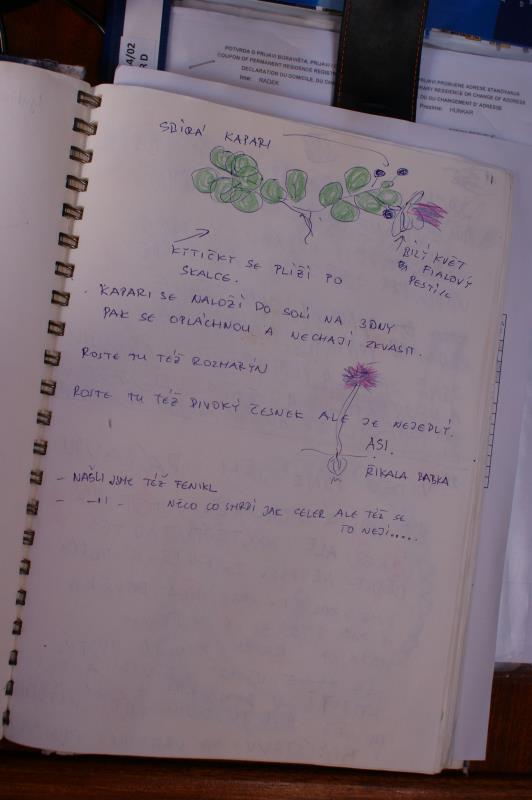 4/02
R D
POTVRDA O PRIJAVI BORAVIŠTA, PRIJAVI
COUPON OF PERMANENT RESIDENCE REGISTR
DECLARATION DU DOMICILE, DU CHA
Ime: RADEK
PRIJAVI PROMJENE ADRESE STANOVANJA
RARY RESIDENCE OR CHANGE OF ADDRESS
OU DU CHANGEMENT D' ADRESSE
Prezime: HUNKAR
SBÍRÁ KAPARI
KYTIČKY SE PLÍŽÍ PO
SKALCE.
BÍLÝ KVĚT
FIALOVÝ
PESTÍK
. KAPARI SE NALOŽÍ DO SOLI NA 3DNY
PAK SE OPLÁCHNOU A NECHAJÍ ZKVASIT.
ROSTE TU TÉŽ ROZMARÝN
ROSTE TU TÉŽ DIVOKÝ ČESNEK ALE JE NEJEDLÝ.
ASI.
ŘÍKALA BABKA
- NAŠLI JSME TÉŽ FENIKL
- -"- NĚCO CO SMRDÍ JAK CELER ALE TÉŽ SE
TO NEJÍ.....